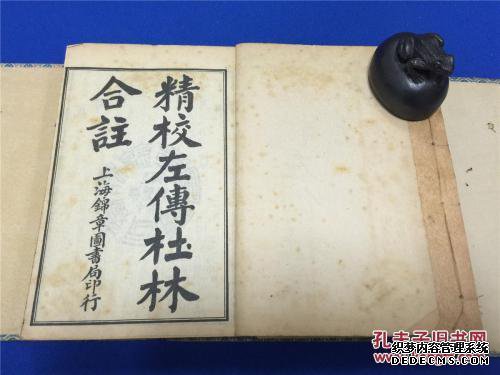 精校左傳杜林
合註
上海錦章圖書局印行
孔夫子旧书网
织梦内容管理系统